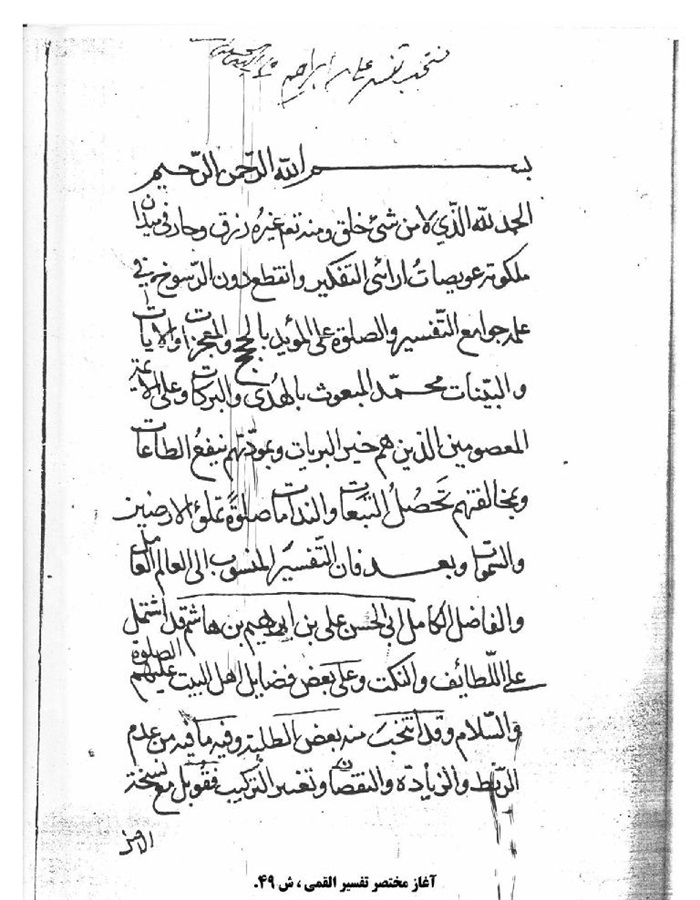 منتخب تفسير علي بن ابراهيم
بسم الله الرحمن الرحيم
الحمد لله الذي لا من شئ خلق ومنه نعم غيره رزق وحار في ميدان
ملكوته عويصات ارائى التفكير وانقطع دون الرسوخ في
علمه جوامع التّفسير والصلوة على المؤيد بالحجج والمعجزات والايات
والبيّنات محمّد المبعوث بالهُدى والبركات وعلى الائمة
المعصومين الذين هم خير البريات وبمودّتهم ينفعُ الطاعات
وبمخالفتهم تَحصُلُ التبعات والندامات صلوةً تملؤ الارضين
والسّموات وبعد فان التّفسير المنسوب الى العالم العامل
والفاضل الكامل ابى الحسن على بن ابرهيم بن هاشم قد اشتمل
على اللّطائف والنكت وعلى بعض فضايل اهل البيت عليهم الصلوة
والسّلام وقد انتخبَ منه بعض الطلبة وفيه ما فيه من عدم
الرّبط والزيادة والنقصان وتغيير التّركيب فقوبل مع نسخة
آغاز مختصر تفسير القمی ، ش ۴۹.